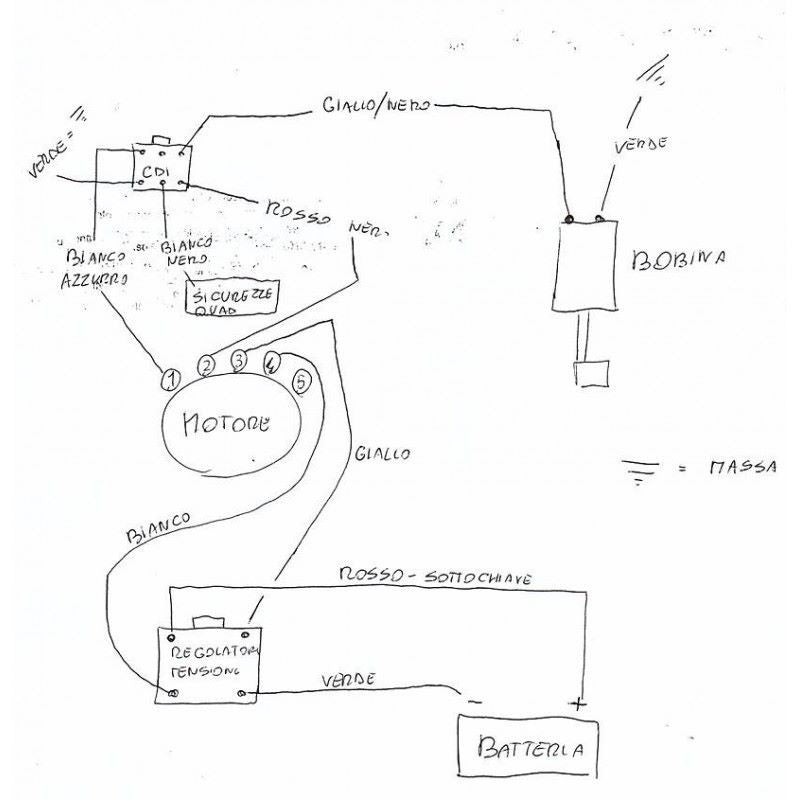 GIALLO/NERO
VERDE
VERDE =
CDI
ROSSO
NER.
BIANCO
AZZURRO
BIANCO
NERO
SICUREZZE
QUAD
BOBINA
1 2 3 4 5
MOTORE
GIALLO
= MASSA
BIANCO
ROSSO - SOTTOCHIAVE
REGOLATORE
TENSIONE
VERDE
- +
BATTERIA